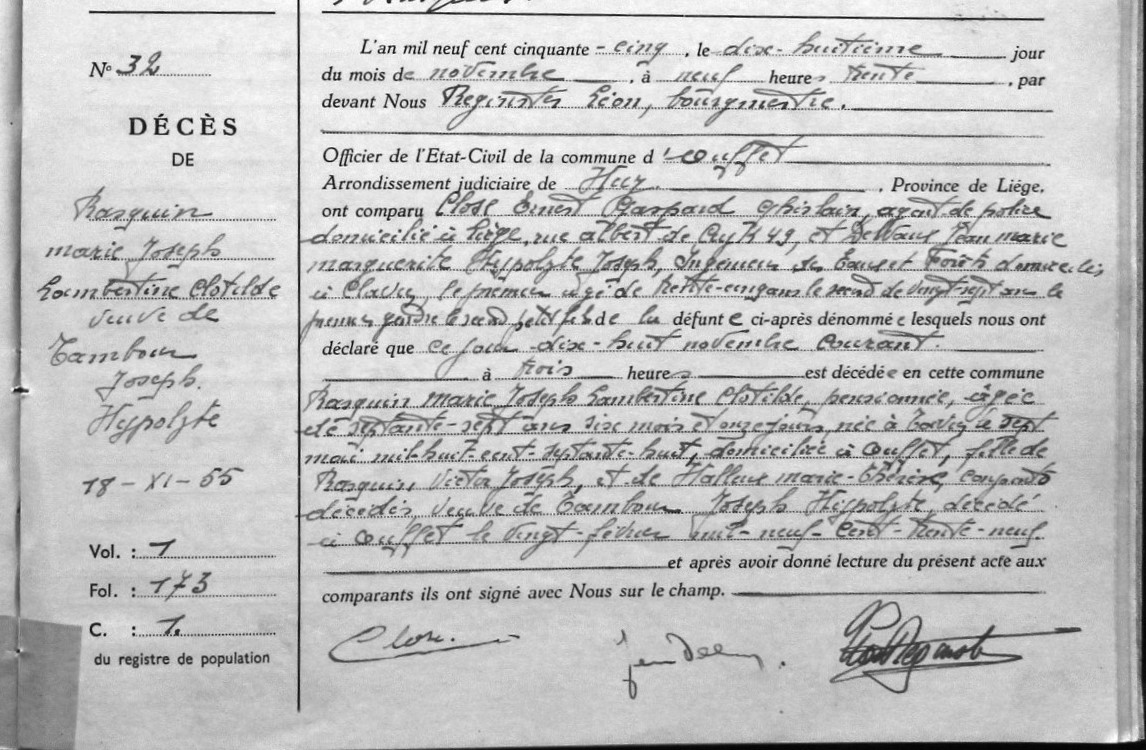 N° 32
DÉCÈS
DE
Rasquin
marie Joseph
Lambertine Clotilde
veuve de
Tambour
Joseph.
Hypolyte
18-XI-55
Vol. : 1
Fol. : 173
C. : 1.
du registre de population
L'an mil neuf cent cinquante - cinq, le dix-huitième jour
du mois de novembre, à neuf heures trente, par
devant Nous Léon, bourgmestre.
Officier de l'Etat-Civil de la commune d'ouffet
Arrondissement judiciaire de Huy, Province de Liége,
ont comparu Close Ernest Gaspard Ghislain, agent de police
domicilié à Liége, rue albert de Cuyck 49, et Jean marie
marguerite Hypolyte Joseph, Ingénieur des Eaux et Forêts domicilié
à Clavier, le premier âgé de trente-cinq ans le second de vingt-sept ans le
premier le second petit fils de la défunte ci-après dénommée lesquels nous ont
déclaré que ce jour dix-huit novembre courant.
à trois heures est décédée en cette commune
Rasquin marie Joseph Lambertine Clotilde, pensionnée, âgée
de septante-sept ans six mois et onze jours, née à le sept
mai mil-huit-cent-septante-huit, domiciliée à ouffet, fille de
Rasquin, Victor Joseph, et de Halleux marie-thérèse, conjoints
décédés, veuve de Tambour Joseph Hypolyte, décédé
à ouffet le vingt-février mil-neuf-cent-trente-neuf.
et après avoir donné lecture du présent acte aux
comparants ils ont signé avec Nous sur le champ.
Close.